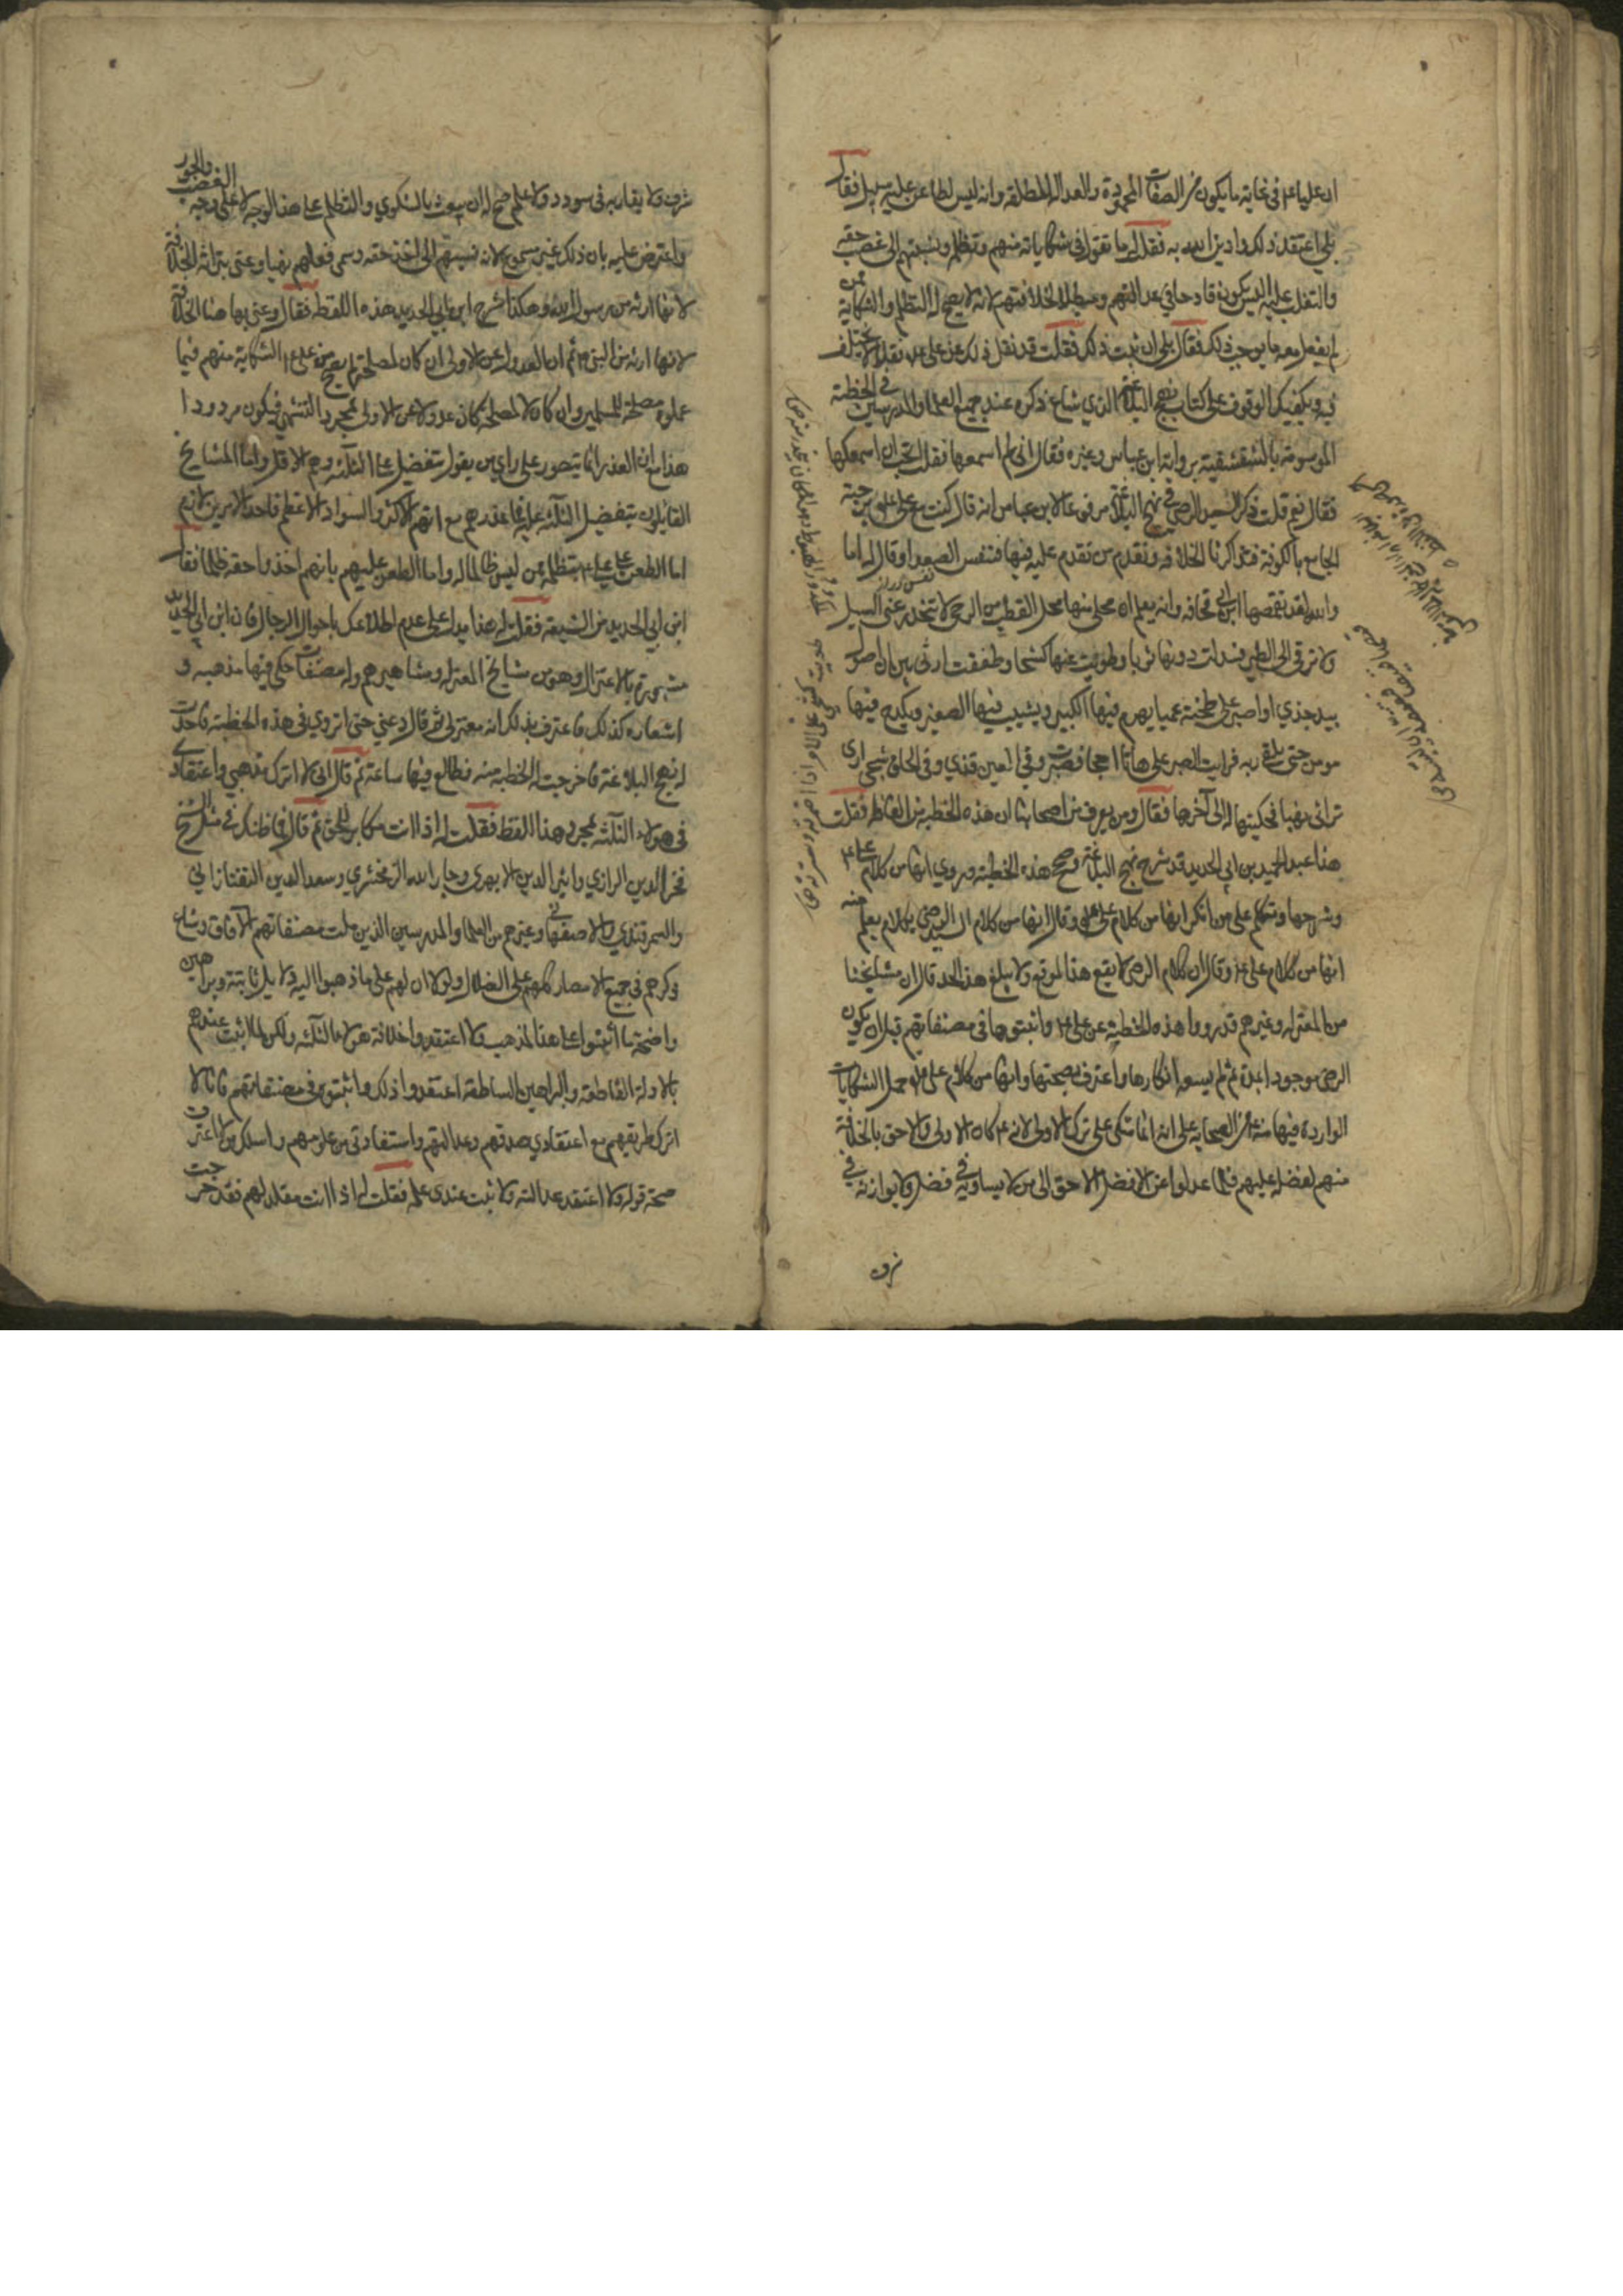 ان عليا ع في غاية ما يكون من الصفات المحمودة والعدالة المطلقة وانه ليس لطاعن عليه سبيل فقال
بلى اعتقد ذلك وادين الله به فقلت له ما تقول في شكاياته منهم وتظلمه ونسبتهم الى غصب حقه
والتغلب عليه اليس يكون قادحا في عدالتهم ومبطلا لخلافتهم لانه لا يصح له التظلم والشكاية ممن
لم يفعل معه ما يوجب ذلك فقال بلى ان ثبت ذلك فقلت قد نقل ذلك عن علي ع نقلا لا يختلف
فيه ويكفيك الوقوف على كتاب نهج البلاغة الذي شاع ذكره عند جميع العلماء والمدرسين في الخطبة
الموسومة بالشقشقية برواية ابن عباس وغيره فقال اني لم اسمعها فقلت اتحب ان اسمعكها
فقال نعم قلت ذكر السيد الرضي في نهج البلاغة مرفوعا الى ابن عباس انه قال كنت مع علي ع برحبة
الجامع بالكوفة فتذاكرنا الخلافة وتقدم من تقدم عليه فيها فتنفس الصعداء وقال اما
والله لقد تقمصها ابن ابي قحافة وانه يعلم ان محلي منها محل القطب من الرحى لا ينحدر عني السيل
ولا ترقى الي الطير فسدلت دونها ثوبا وطويت عنها كشحا وطفقت ارتئي بين ان اصول
بيد جذاء او اصبر على طخية عمياء يهرم فيها الكبير ويشيب فيها الصغير ويكدح فيها
مومن حتى يلقى ربه فرايت الصبر على هاتا احجى فصبرت وفي العين قذى وفي الحلق شجى ارى
تراثي نهبا فحكيتها له الى آخرها فقال ومن يعرف من اصحابنا ان هذه الخطبة من الفاظه فقلت
هذا عبد الحميد بن ابي الحديد قد شرح نهج البلاغة وصحح هذه الخطبة وروي انها من كلام علي ع
وشرحها وتكلم على من انكر انها من كلام علي ع وقال انها من كلام السيد الرضي بكلام يعلم منه
انها من كلام علي ع وقال ان كلام الرضي لا يقع هذا الموقع ولا يبلغ هذا الحد قال ان مشايخنا
من المعتزلة وغيرهم قد رووا هذه الخطبة عن علي ع واثبتوها في مصنفاتهم قبل ان يكون
الرضي موجودا بمدة ثم لم يسعه انكارها واعترف بصحتها وانها من كلام علي ع حمل الشكايات
الواردة فيها منه ع من الصحابة على انه انما شكى على ترك الاولى لانه ع كان الاولى والاحق بالخلافة
منهم لفضله عليهم فلما عدلوا عن الافضل الاحق الى من لا يساويه في فضل ولا يوازنه في
شرف
شرف ولا يقاربه في سودد ولا علم صح له ان يبعث بالشكوى والتظلم على هذا الوجه لا على وجه الغصب والجور
واعترض عليه بان ذلك غير مسموع لانه نسبتهم الى اخذ حقه وسمى فعلهم نهبا وعنى بتراثه الخلافة
لانها ارثه من رسول الله وهكذا شرح ابن ابي الحديد هذه اللفظة فقال وعنى بها هنا الخلافة
لانها ارثه من النبي ص ثم ان العدول عن الاولى ان كان لمصلحة لم يصح من علي ع الشكاية منهم فيما
عملوه مصلحة للمسلمين وان كان لا لمصلحة كان عدولا عن الاولى لمجرد التشهي فيكون مردودا
هذا مع ان العذر انما يتصور على راي من يقول بتفضيل علي الثلثة وهم الاقل واما المشايخ
القائلون بتفضيل الثلثة عليه فما عذرهم مع انهم الاكثر والسواد الاعظم فاحد الامرين لازم
اما الطعن على علي ع بتظلمه ممن ليس ظالما له واما الطعن عليهم بانهم اخذوا حقه ظلما فقال
ابن ابي الحديد من الشيعة فقلت له هذا يدل على عدم اطلاعك باحوال الرجال فان ابن ابي الحديد
مشهور بالاعتزال وهو من مشايخ المعتزلة ومشاهيرهم وله مصنفات حكى فيها مذهبه و
اشعاره كذلك فاعترف بذلك انه معتزلي ثم قال دعني حتى اتروى في هذه الخطبة فاخذت
له نهج البلاغة فاخرجت له الخطبة منه فطالع فيها ساعة ثم قال اني لا اترك مذهبي واعتقادي
في هولاء الثلثة بمجرد هذا اللفظ فقلت له اذا انت مكابر للحق ثم قال فما ظنك في مثل الشيخ
فخر الدين الرازي واثير الدين الابهري وجار الله الزمخشري وسعد الدين التفتازاني
والسمرقندي والاصفهاني وغيرهم من العلماء والمدرسين الذين ملئت مصنفاتهم الآفاق وشاع
ذكرهم في جميع الامصار كلهم على الضلال ولولا ان لهم على ما ذهبوا اليه دلايل ثابتة وبراهين
واضحة ما اثبتوا على هذا المذهب ولا اعتقدوا خلافة هولاء الثلثة ولكن لما ثبت عندهم
بالادلة القاطعة والبراهين الساطعة اعتقدوا ذلك واثبتوه في مصنفاتهم فانا لا
اترك طريقهم مع اعتقادي صدقهم وعدالتهم واستفادتي من علومهم واسلك من لا اعترف
صحة قوله ولا اعتقد عدالته ولا ثبت عندي علمه فقلت له اذا انت مقلد لهم فقد خرجت